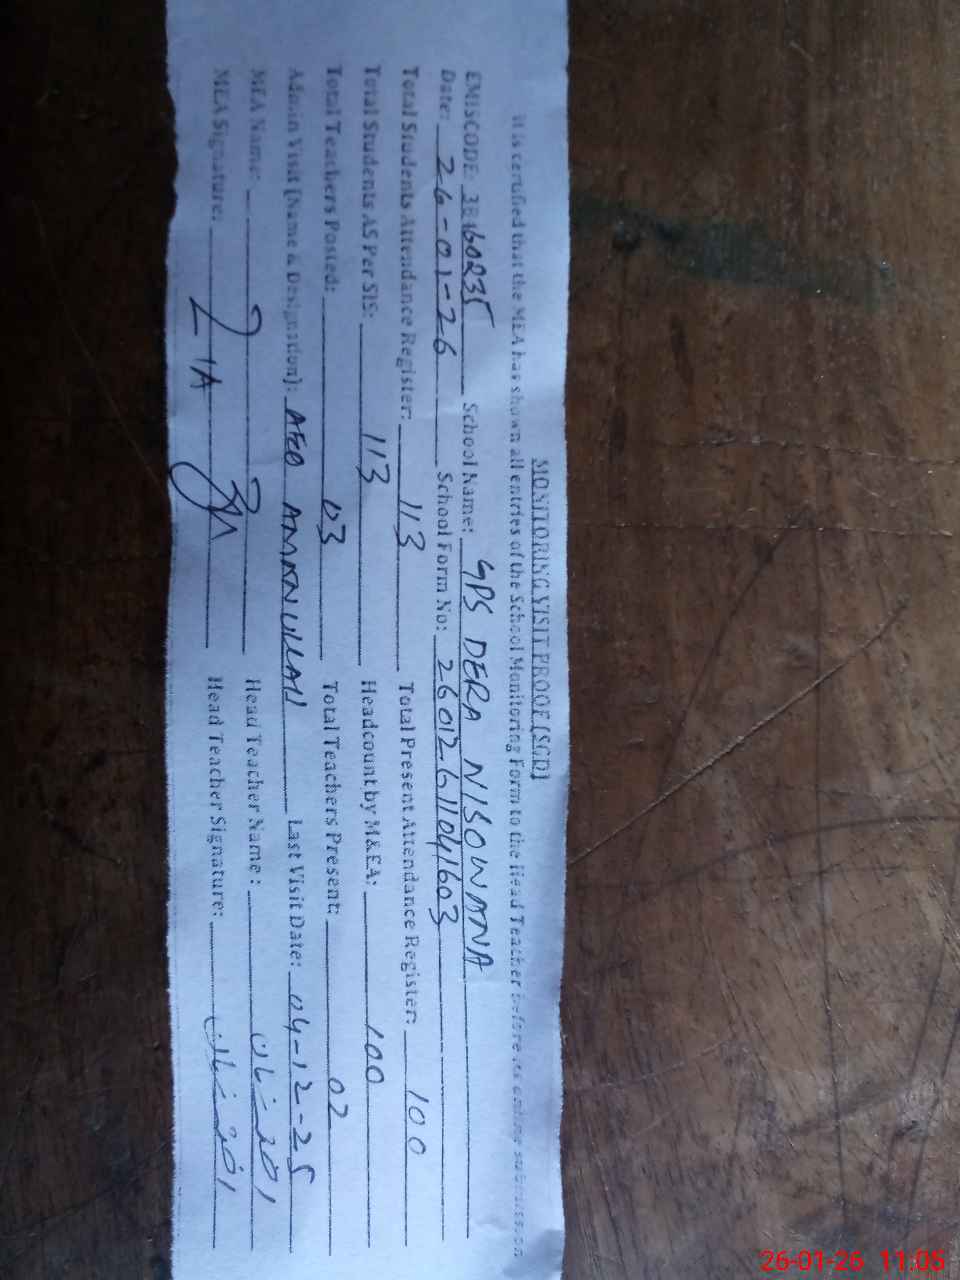 MONITORING VISIT PROOF (SCD)
It is certified that the MEA has shown all entries of the School Monitoring Form to the Head Teacher before its online submission
EMISCODE: 38460235 School Name: GPS DERA NISOWANA
Date: 26-01-26 School Form No: 26012611041603
Total Students Attendance Register: 113 Total Present Attendance Register: 100
Total Students AS Per SIS: 113 Headcount by M&EA: 100
Total Teachers Posted: 03 Total Teachers Present: 02
Admin Visit (Name & Designation): AEO AMANULLAH Last Visit Date: 04-12-25
MEA Name: Head Teacher Name:
MEA Signature: Head Teacher Signature:
26-01-26 11:05